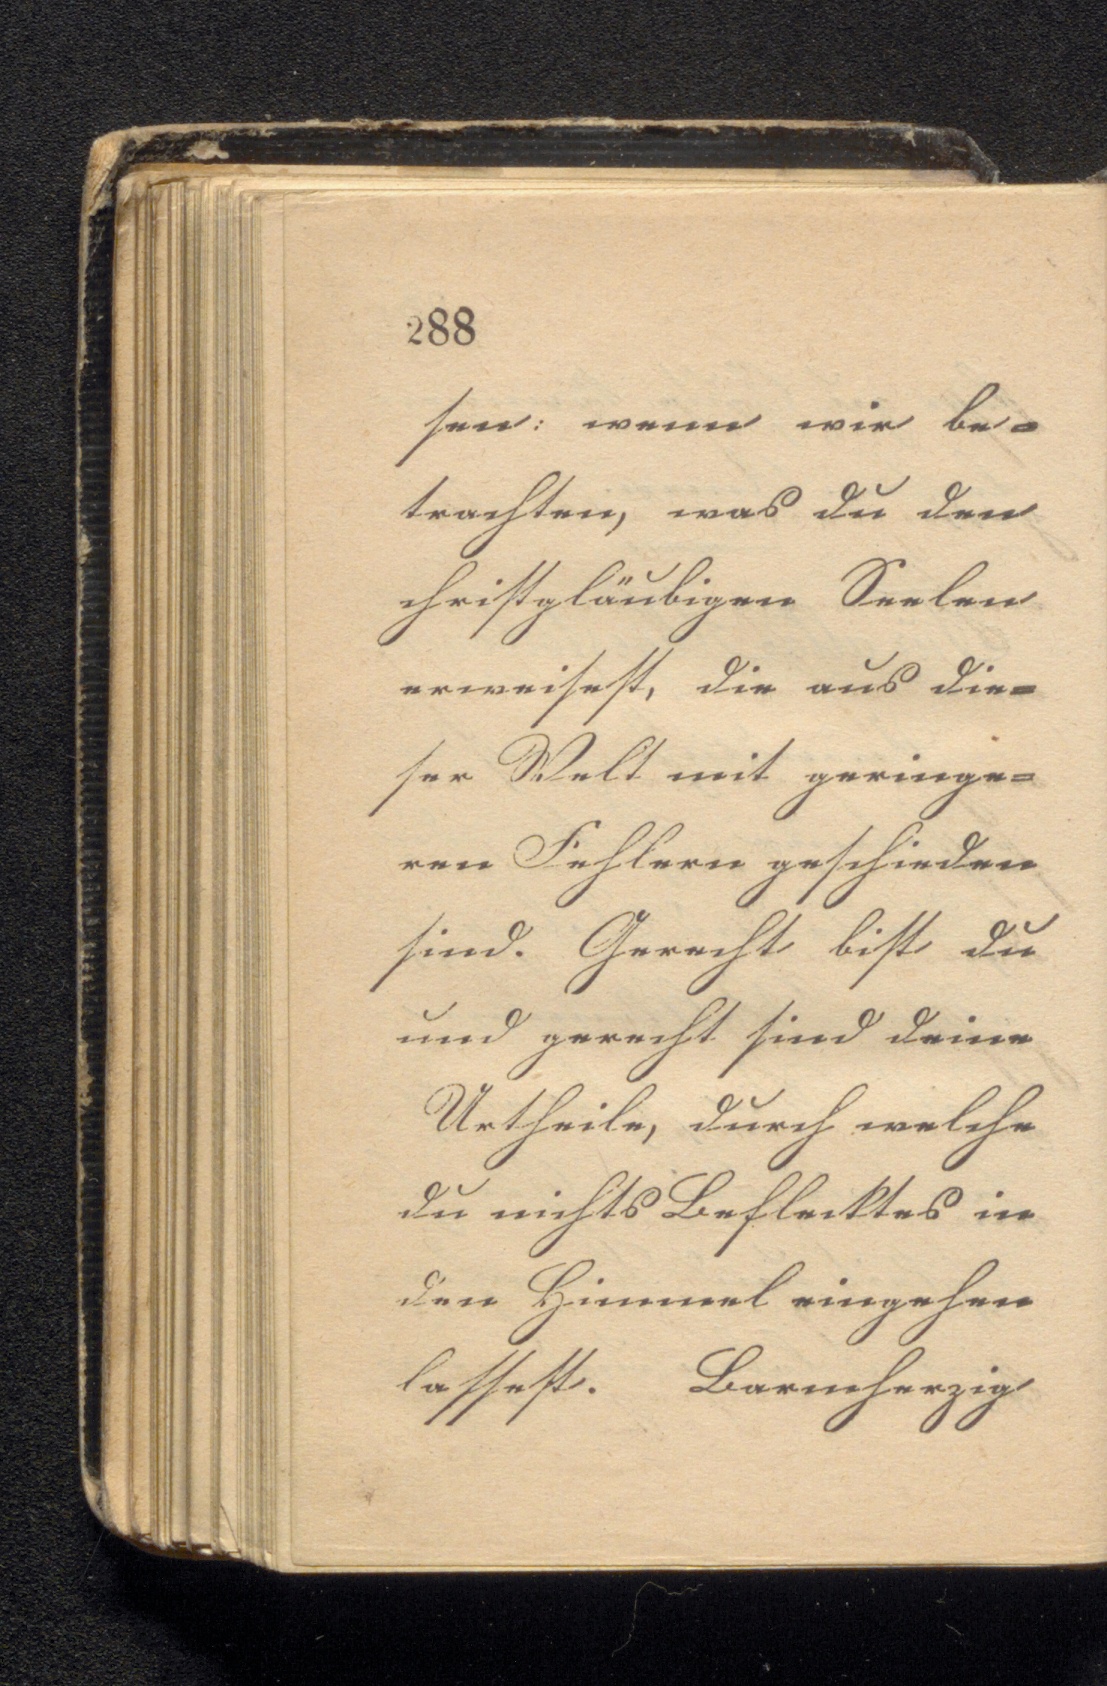 288
sen: wenn wir be=
trachten, was du den
christgläubigen Seelen
erweisest, die aus die=
ser Welt mit geringe=
ren Fehlern geschieden
sind. Gerecht bist du
und gerecht sind deine
Urtheile, durch welche
du nichts Beflecktes in
den Himmel eingehen
lassest. Barmherzig